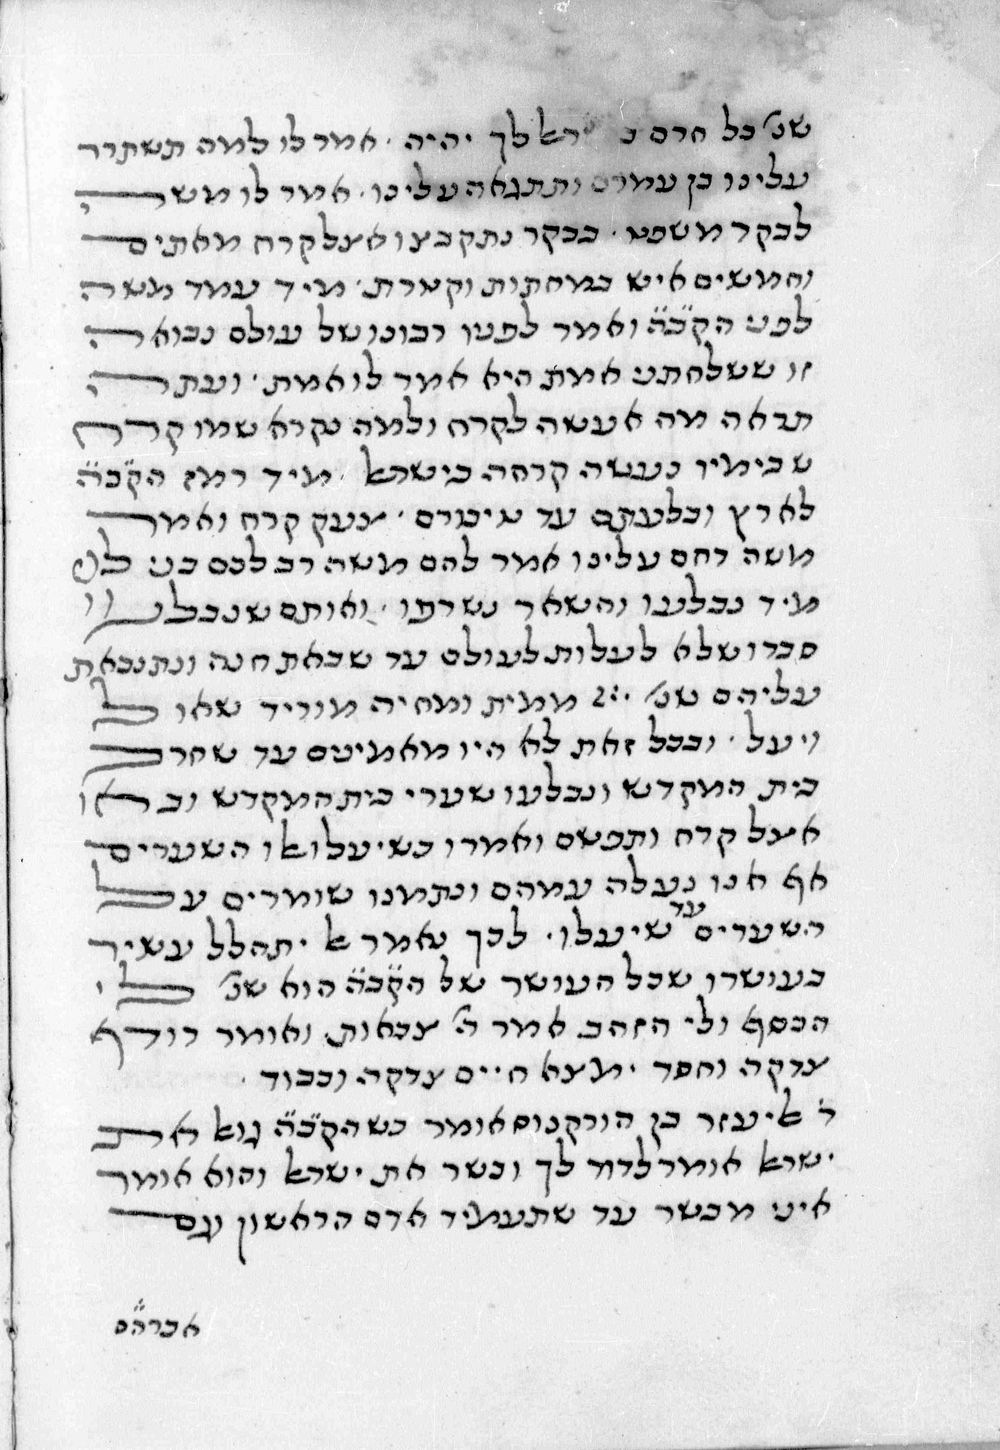 שנ' כל חרם בישראל לך יהיה . אמר לו למה תשתרר
עלינו בן עמרם ותתגאה עלינו . אמר לו משה
לבקר משפט . בבקר נתקבצו אצל קרח מאתים
וחמשים איש במחתות וקטרת . מיד עמד משה
לפני הקב"ה ואמר לפניו רבונו של עולם נבואה
זו ששלחתני אמת היא אמר לו אמת . ועתה
תראה מה אעשה לקרח ולמה נקרא שמו קרח
שבימיו נעשה קרחה בישראל . מיד רמז הקב"ה
לארץ ובלעתם עד טיבורם . צעק קרח ואמר
משה רחם עלינו אמר להם משה רב לכם בני לוי
מיד נבלעו והשאר נשרפו . ואותם שנבלעו
סברו שלא לעלות לעולם עד שבאת חנה ונתנבאת
עליהם שנ' ייי ממית ומחיה מוריד שאול
ויעל . ובכל זאת לא היו מאמינים עד שחרב
בית המקדש ונבלעו שערי בית המקדש ובאו
אצל קרח ותפשם ואמרו כשיעלו אלו השערים
אף אנו נעלה עמהם ונתמנו שומרים על
השערים עד שיעלו . לכך נאמר אל יתהלל עשיר
בעושרו שכל העושר של הקב"ה הוא שנ' לי
הכסף ולי הזהב אמר ה' צבאות . ואומר רודף
צדקה וחסד ימצא חיים צדקה וכבוד .
ר' אליעזר בן הורקנוס אומר כשהקב"ה גואל את
ישראל אומר לדוד לך ובשר את ישראל והוא אומר
איני מבשר עד שתעמיד אדם הראשון וגם
אברהם